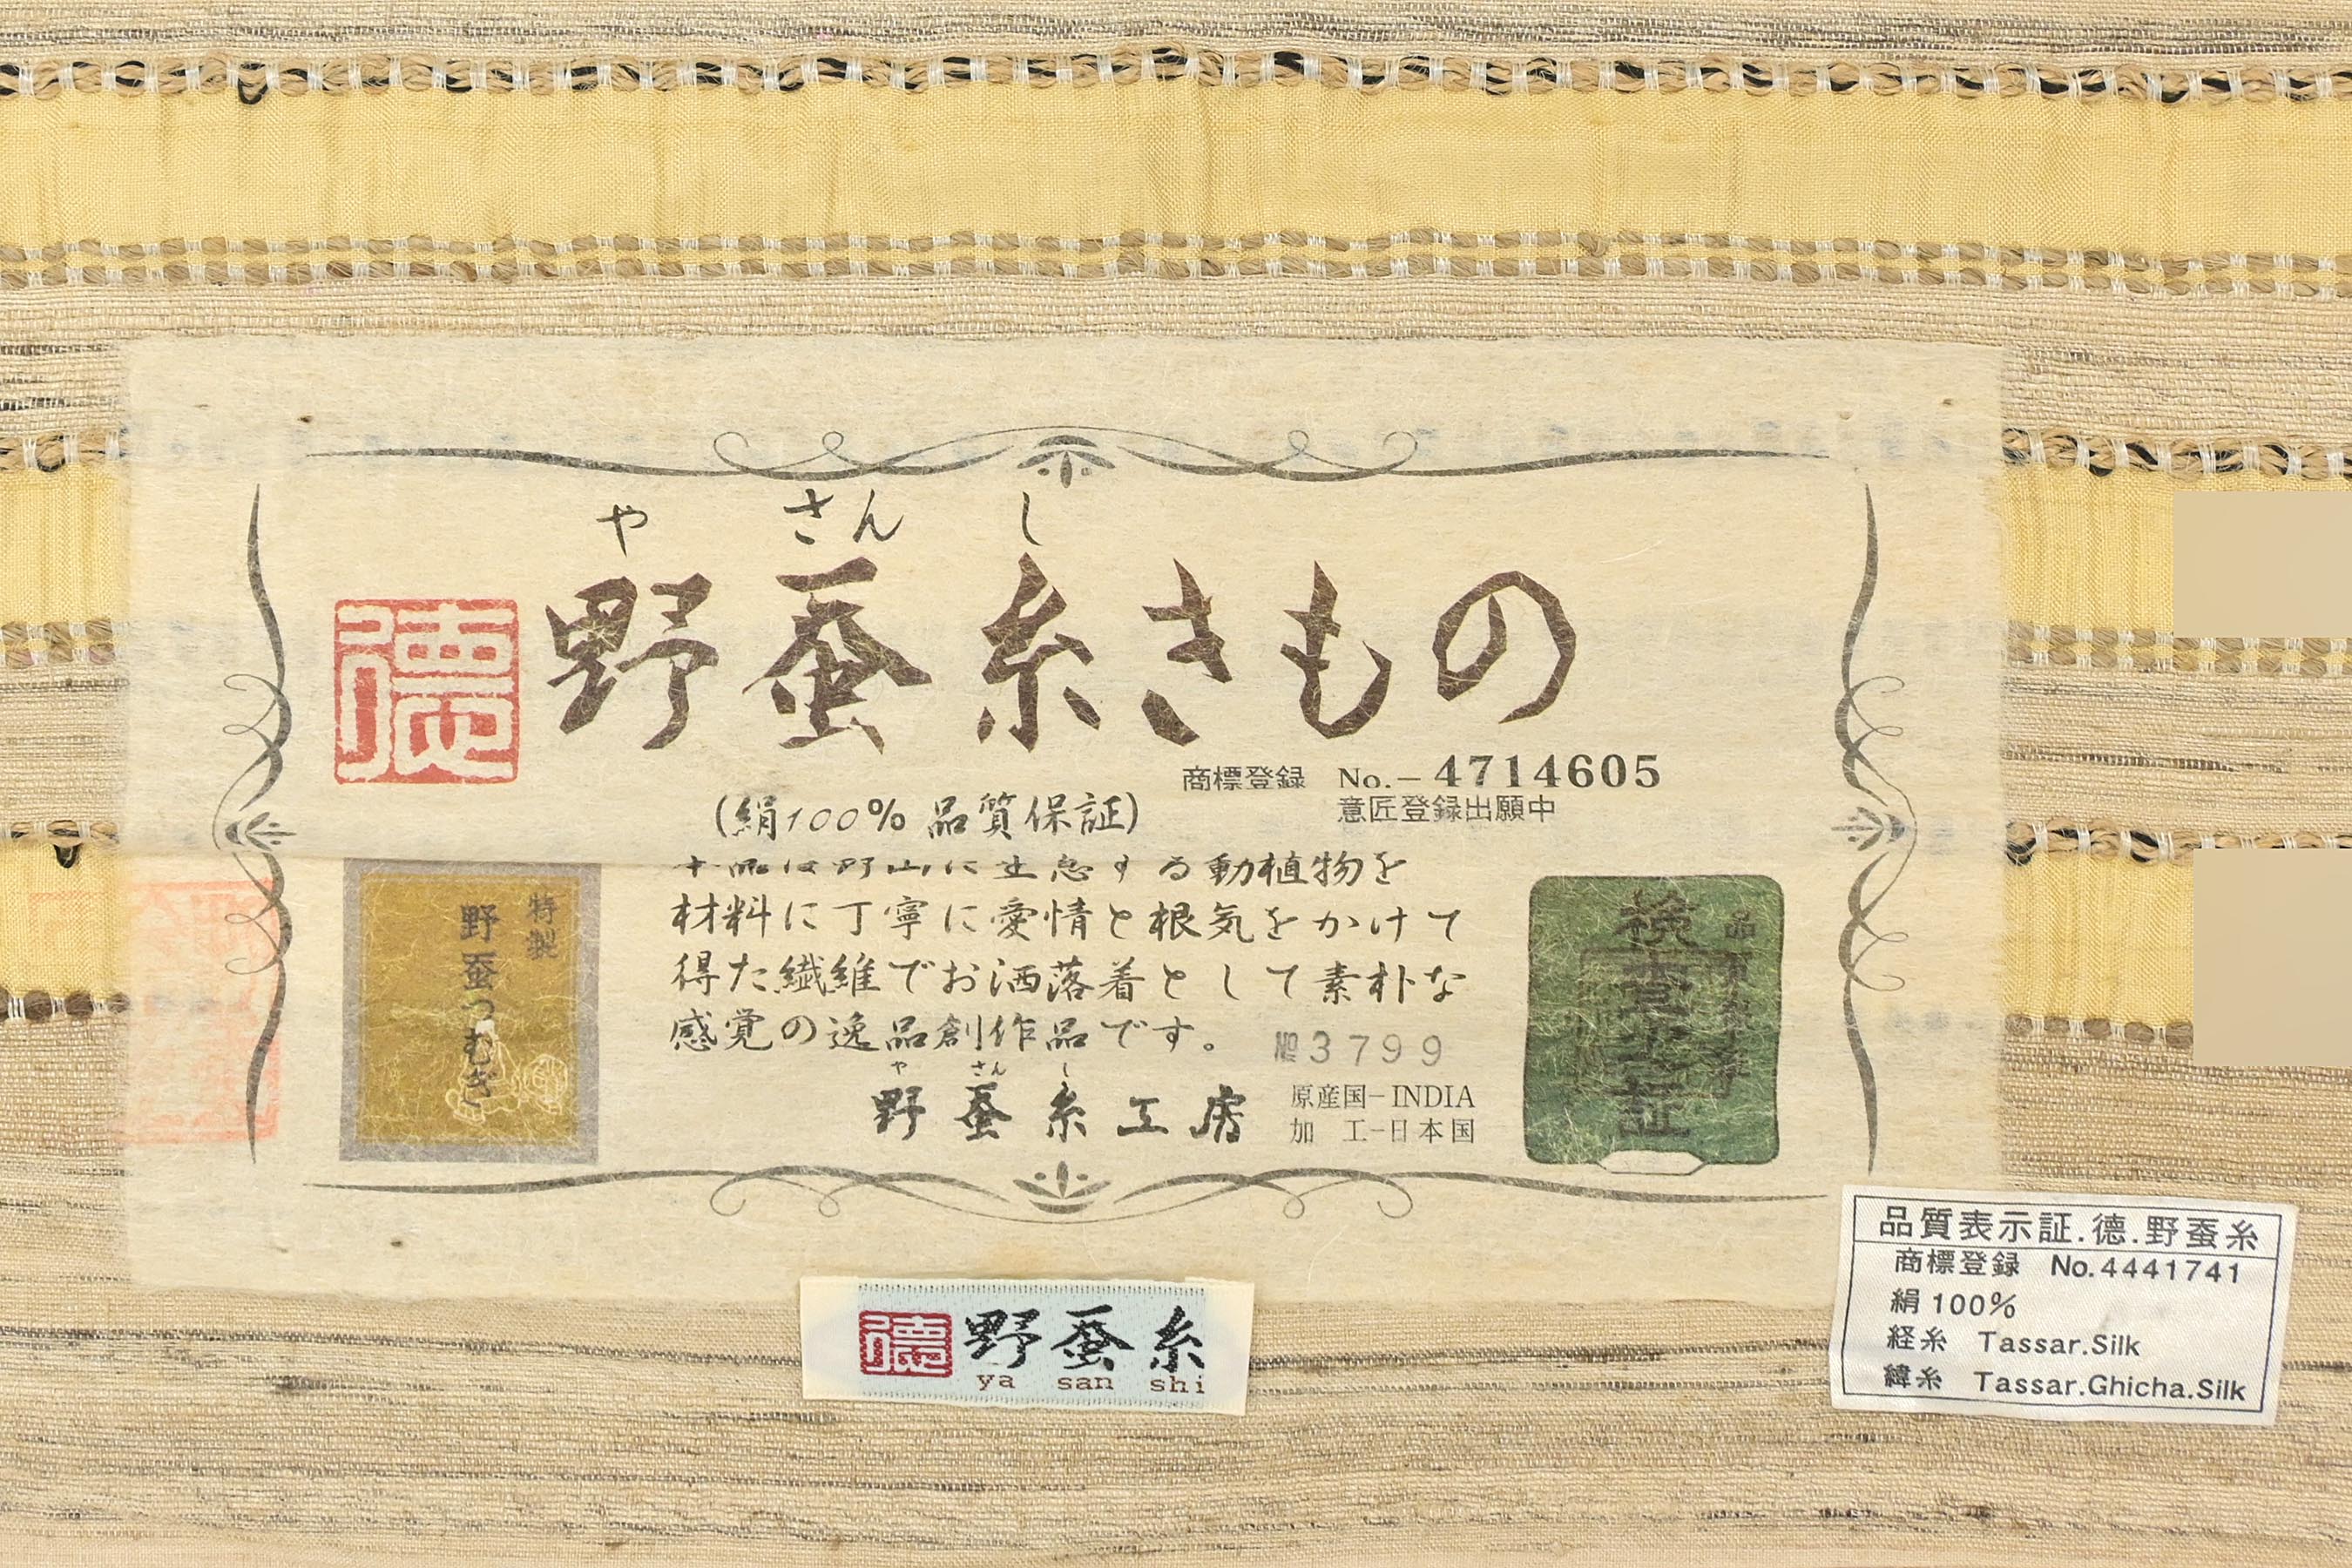 や さん し
德
野蚕糸きもの
商標登録 No.−4714605
意匠登録出願中
(絹100% 品質保証)
動植物を
材料に丁寧に愛情と根気をかけて
得た繊維でお洒落着として素朴な
感覚の逸品創作品です。
№3799
や さん し
野蚕糸工房
原産国−INDIA
加 工−日本国
特製
野蚕つむぎ
検査之証
德 野蚕糸
ya san shi
品質表示証.德.野蚕糸
商標登録 No.4441741
絹100%
経糸 Tassar.Silk
緯糸 Tassar.Ghicha.Silk